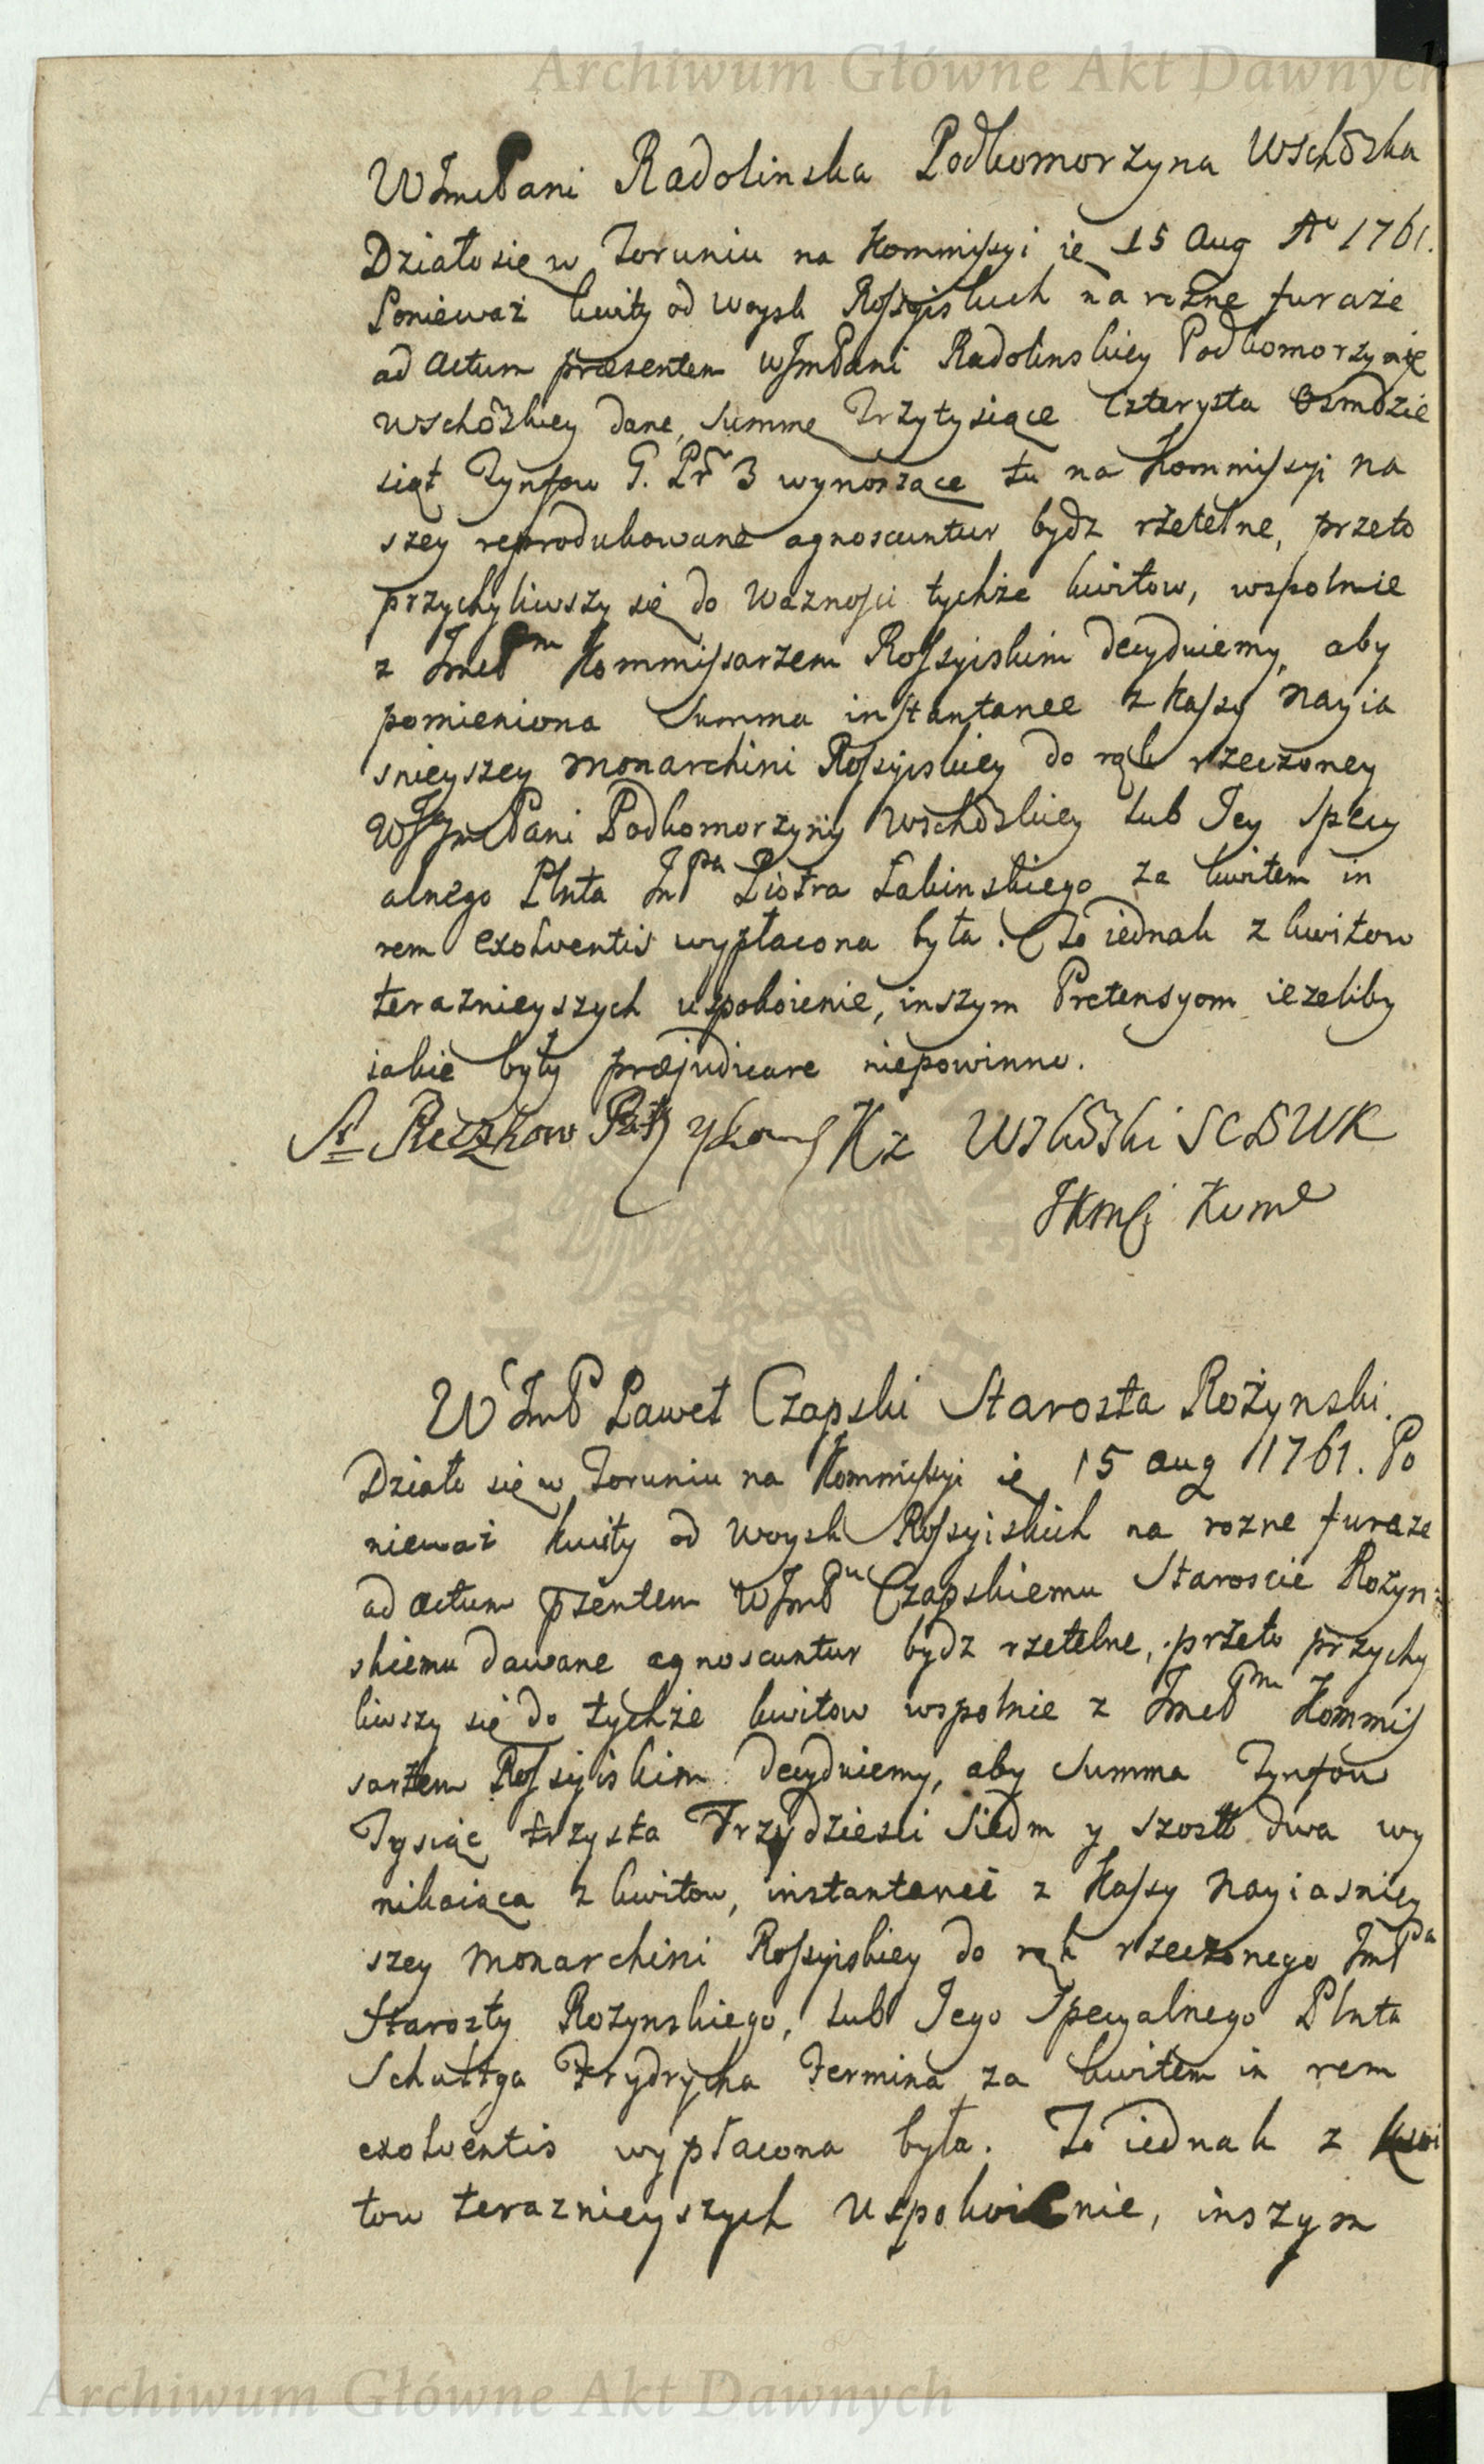 Archiwum Główne Akt Dawnych
WJmcPani Radolinska Podkomorzyna Wschoska
Działo się w Toruniu na Kommissyi ie 15 Aug Ao 1761.
Ponieważ kwity od Woysk Rossyiskich na rożne furaże
ad Actum præsentem WJmPani Radolinskiey Podkomorzynie
Wschoskiey dane, Summę Trzytysiące Czterysta Osmdzie
siąt Tynfow G. Pr 3 wynoszące tu na Kommissyi na
szey reprodukowane agnoscuntur bydz rżetelne, przeto
przychyliwszy się do Waznosci tychże kwitow, wspolnie
z JmcPm Kommissarzem Rossyiskim decyduiemy, aby
pomieniona Summa instantanee z Kassy Nayia
snieyszey Monarchini Rossyiskiey do rąk rzeczoney
WJmcPani Podkomorzyny Wschoskiey lub Jey Specy
alnego Plnta JmPa Piotra Łakinskiego za kwitem in
rem exolventis wypłacona była. To iednak z kwitow
teraznieyszych uspokoienie, inszym Pretensyom ieżeliby
iakie były præjudicare niepowinno.
Kz SCDWK
WJmP Paweł Czapski Starosta Rożynski.
Działo się w Toruniu na Kommissyi ie 15 aug 1761. Po
nieważ kwity od Woysk Rossyiskich na rozne furaze
ad actum pzentem WJmPu Czapskiemu Staroscie Rożyn:
skiemu dawane agnoscuntur bydz rzetelne, przeto przychy
liwszy się do tychże kwitow wspolnie z JmcPm Kommis
sarzem Rossyiskim decyduiemy, aby Summa Tynfow
Tysiąc trzysta Trzydziesci Siedm y szostt dwa wy
nikaiąca z kwitow, instantaneé z Kassy Nayiasniey
szey Monarchini Rossyiskiey do rąk rzeczonego JmPa
Starosty Rożynskiego, lub Jego Specyalnego Plnta
Frydrycha Fermina za kwitem in rem
exolventis wypłacona była. To iednak z kwi
tow teraznieyszych Uspokoienie, inszym
Archiwum Główne Akt Dawnych